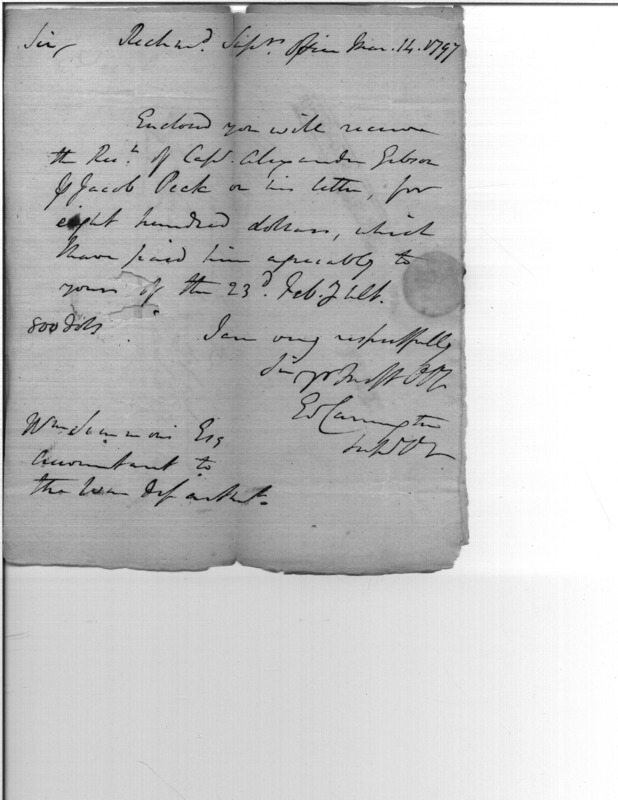 Sir, Richmd. Supvrs Office Mar. 14. 1797
Enclosed you will receive
the Rect. of Capt. Alexander Gibson
& Jacob Peck on his letter, for
eight hundred dollars, which
I have paid him agreeably to
yours of the 23d. Feby. Ult.
800 dols. I am very respectfully
Sir yr
Ed Carrington
Supvr
Wm Simmons Esq
Accountant to
the War Departmt.